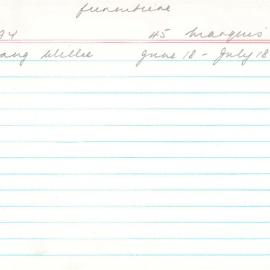 furniture
94 45 Marquis
ang Willie June 18 - July 18